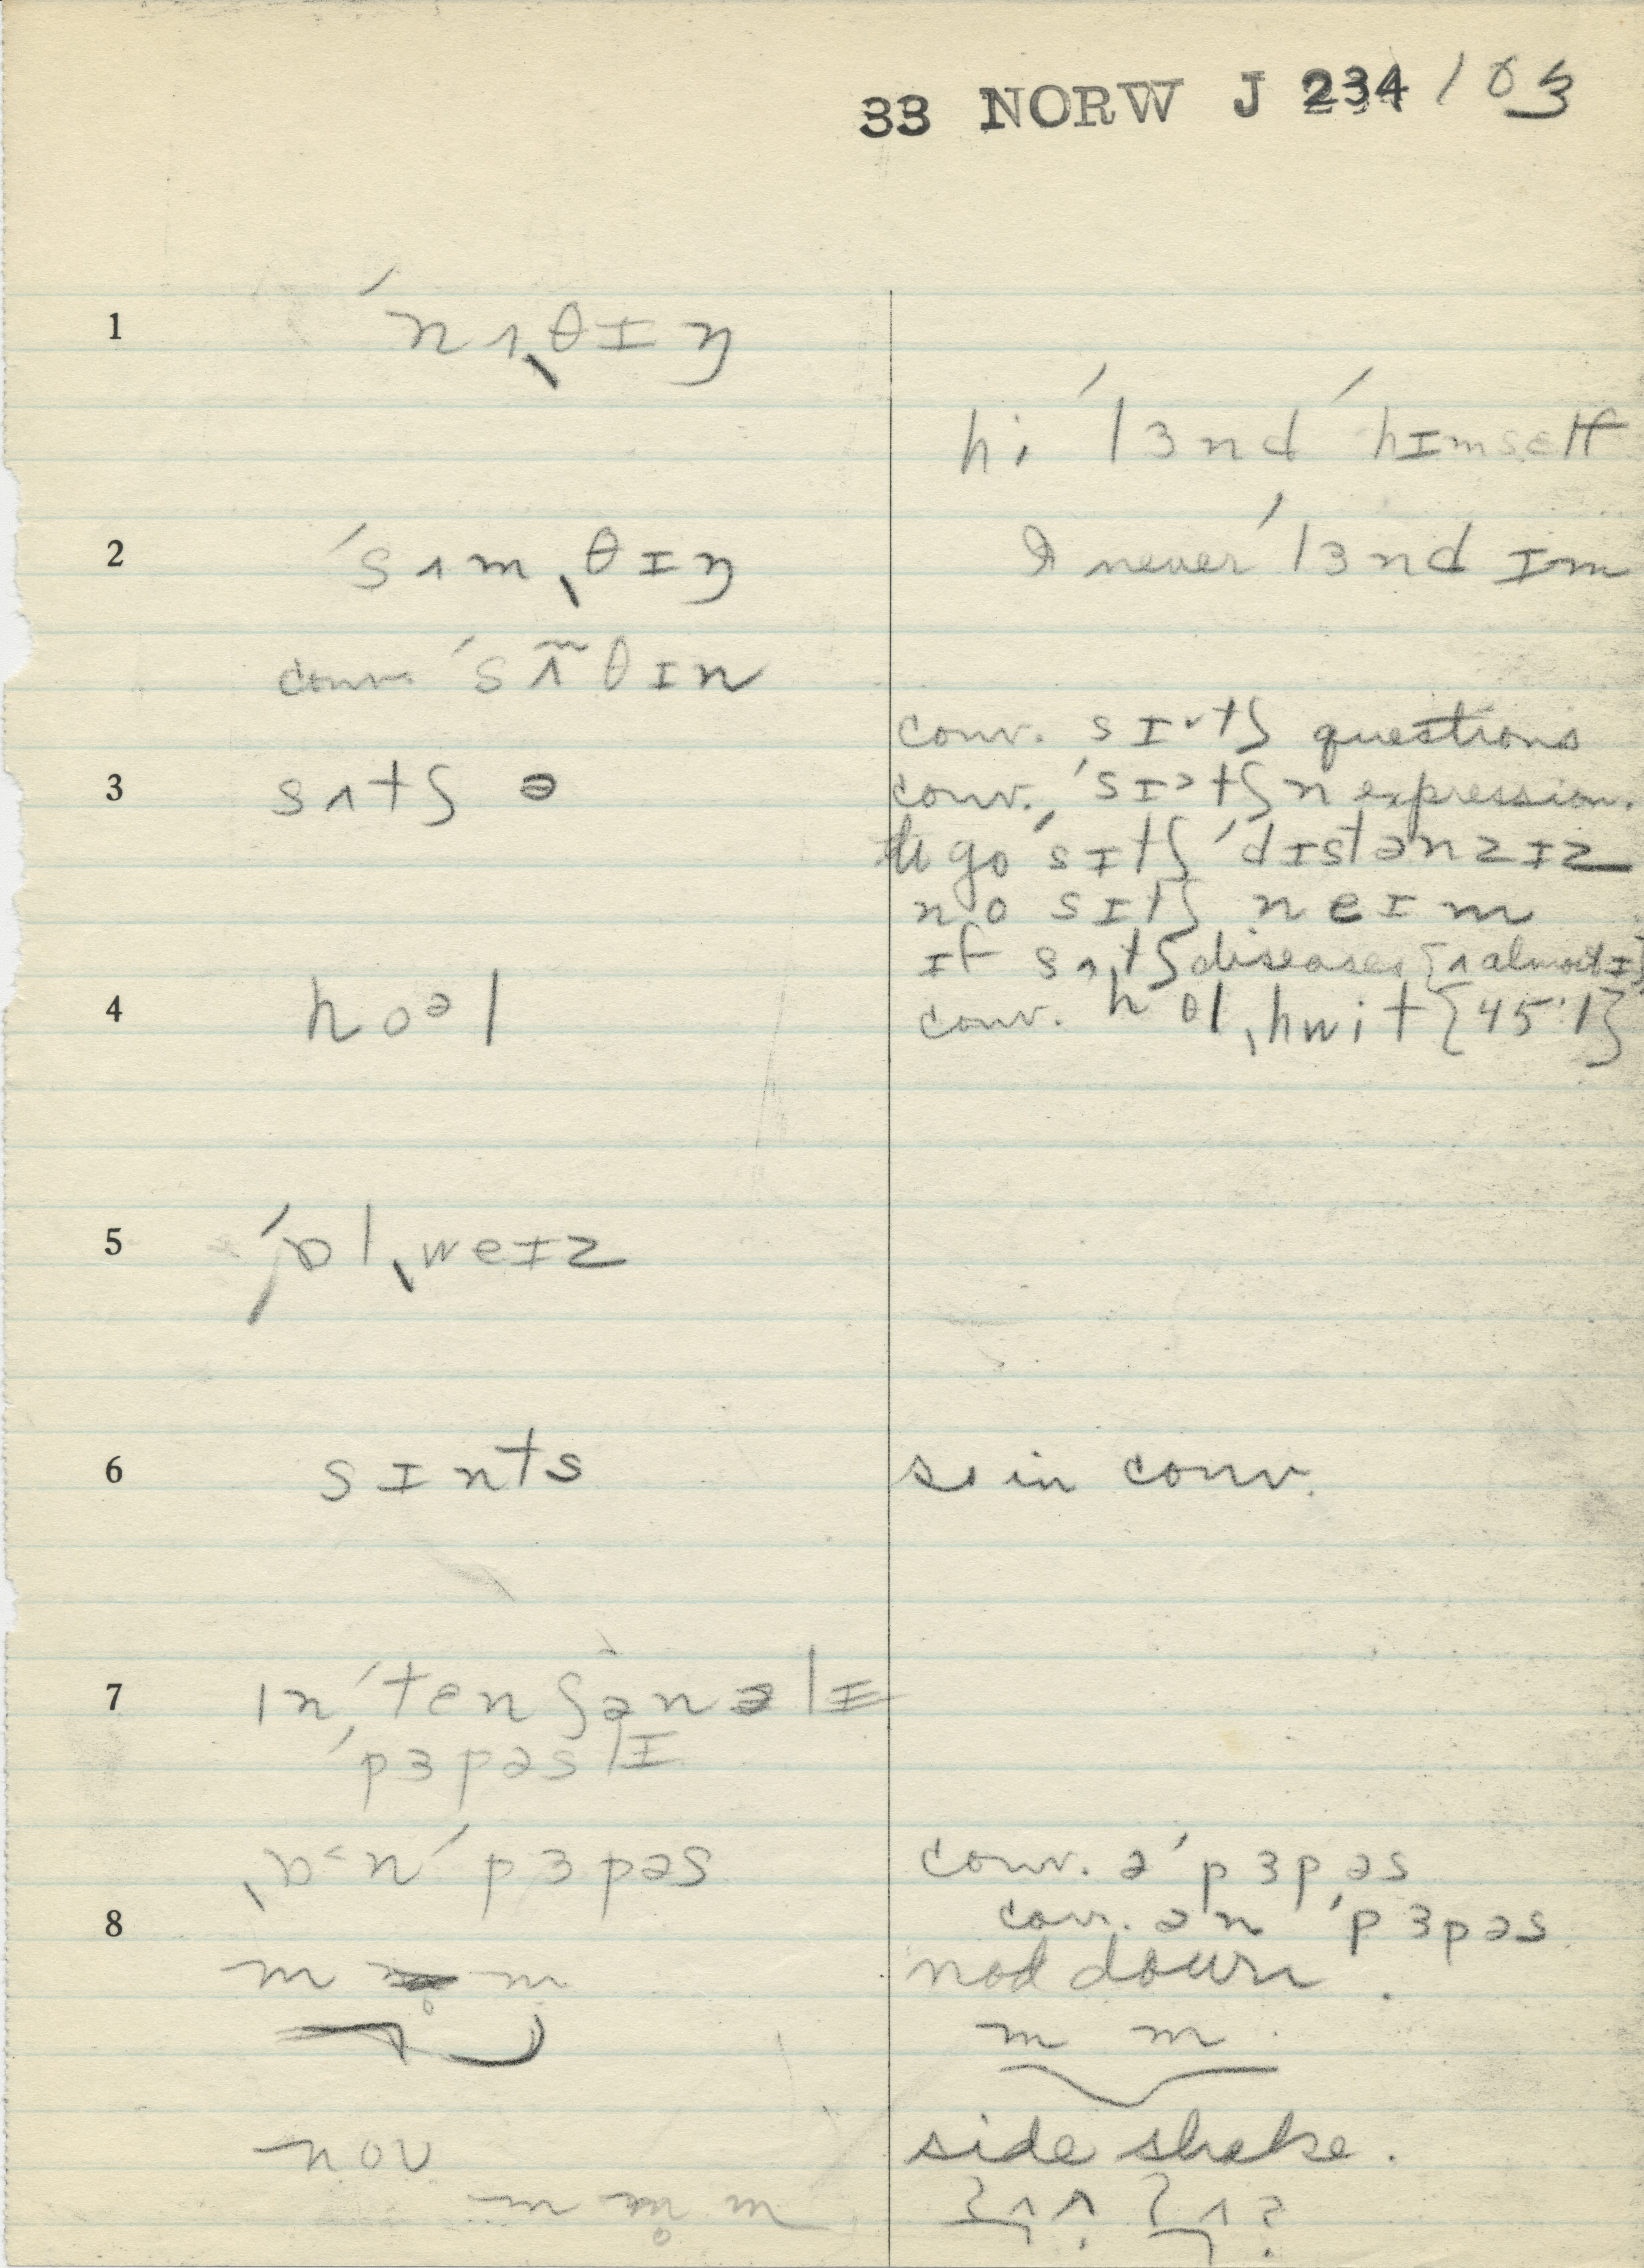 33 NORW J 234 / 03
1 ˈnʌˌθɪŋ
hi ˈlɜnd ˈhɪmself
2 ˈsʌmˌθɪŋ
I never ˈlɜnd ɪm
conv. ˈsʌ̃mθɪn
conv. sɪˇtʃ questions
3 sʌtʃ ə
conv. ˈsɪ˃tʃ n expression.
to go ˈsɪtʃ ˈdɪstənzɪz
no sɪtʃ neɪm
ɪf sʌtʃ diseases {ʌ almost ɪ}
4 hoᵊl
conv. hol ˌhwit {45.1}
5 ˈɒlˌweɪz
6 sɪnts
so in conv.
7 ɪnˈtenʃənəlɪ
ˈpɜpəslɪ
ˌɒ˂nˈpɜpəs
conv. əˈpɜpəs
8
conv. ən ˈpɜpəs
m m
nod down.
m m.
noʊ
side shake.
m m̥ m
ʔʌʌ? ʔʌ?